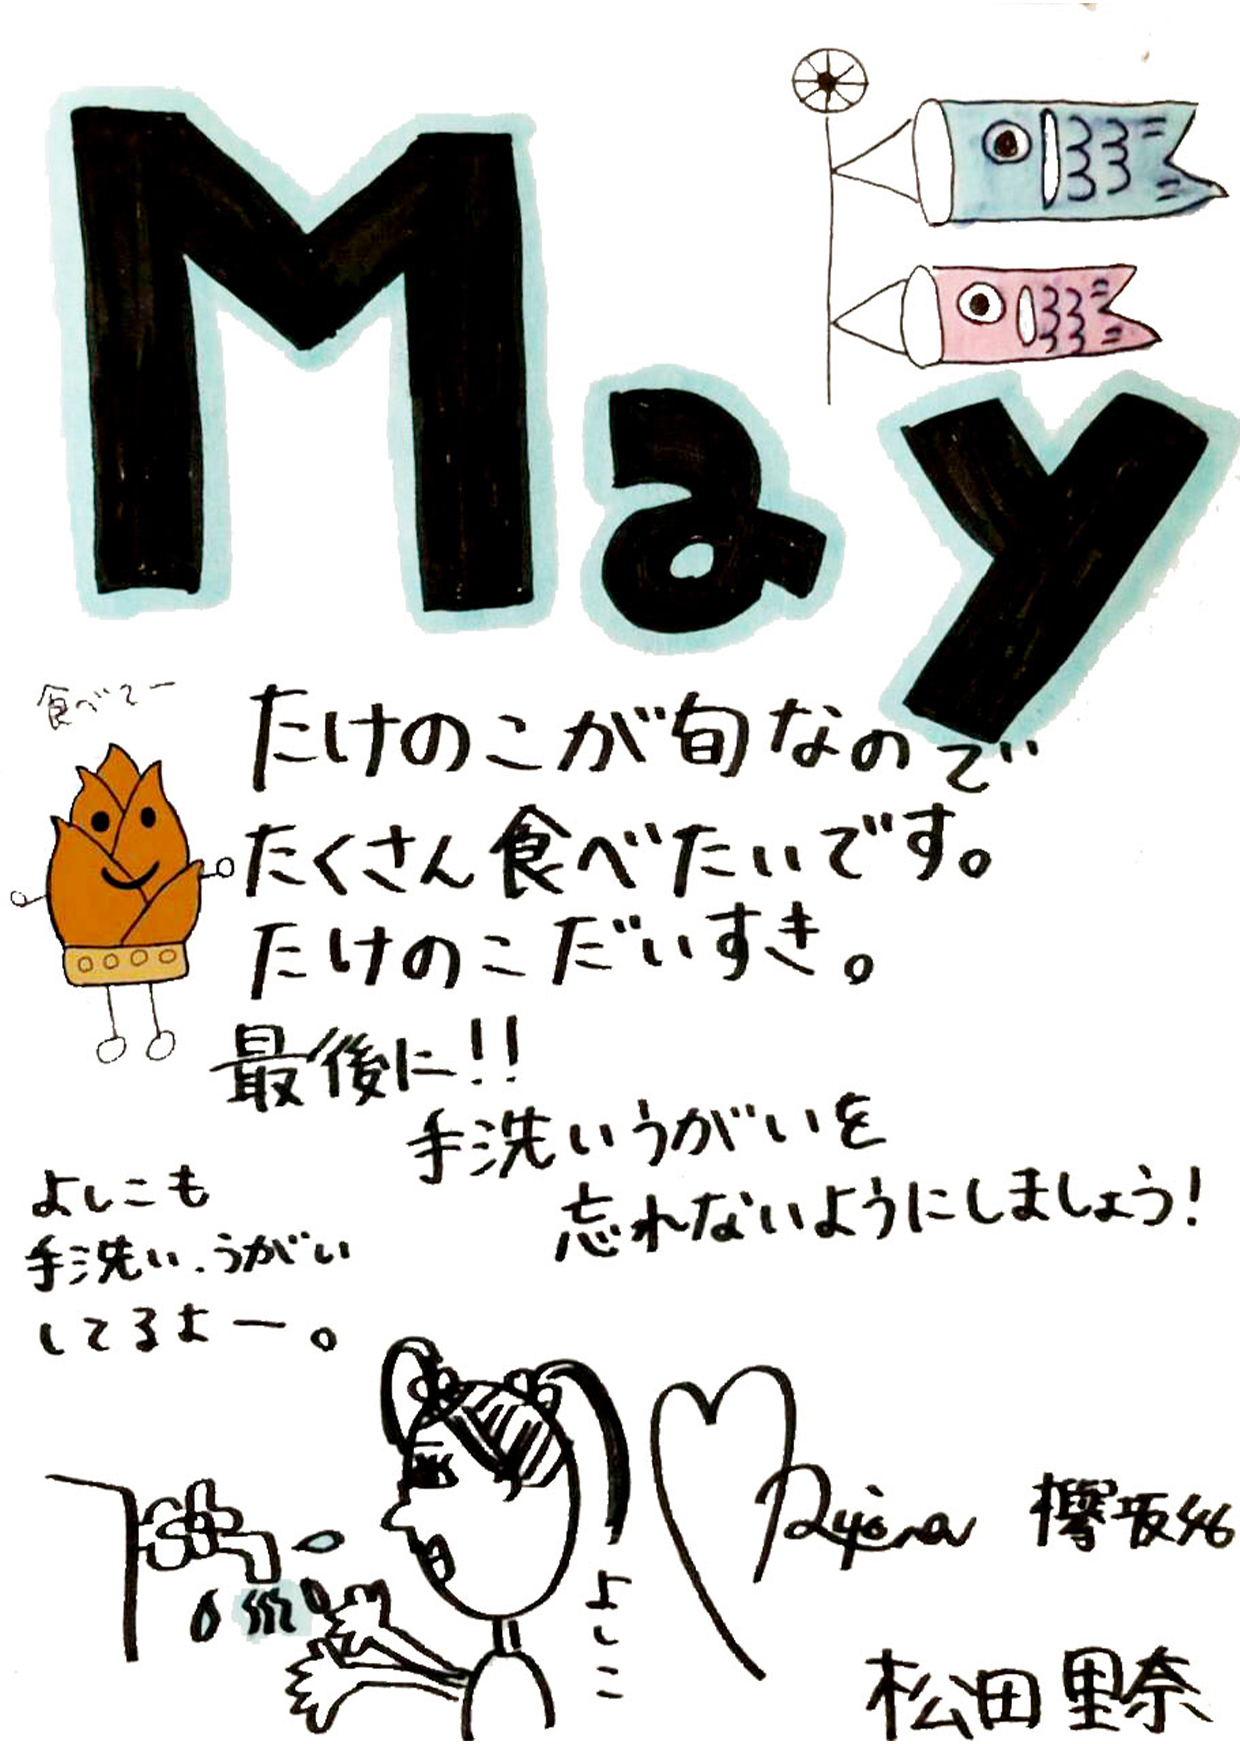 May
食べてー
たけのこが旬なので
たくさん食べたいです。
たけのこだいすき。
最後に!!
手洗いうがいを
忘れないようにしましょう!
よしこも
手洗い、うがい
してるよー。
よしこ
Ryena 欅坂46
松田里奈